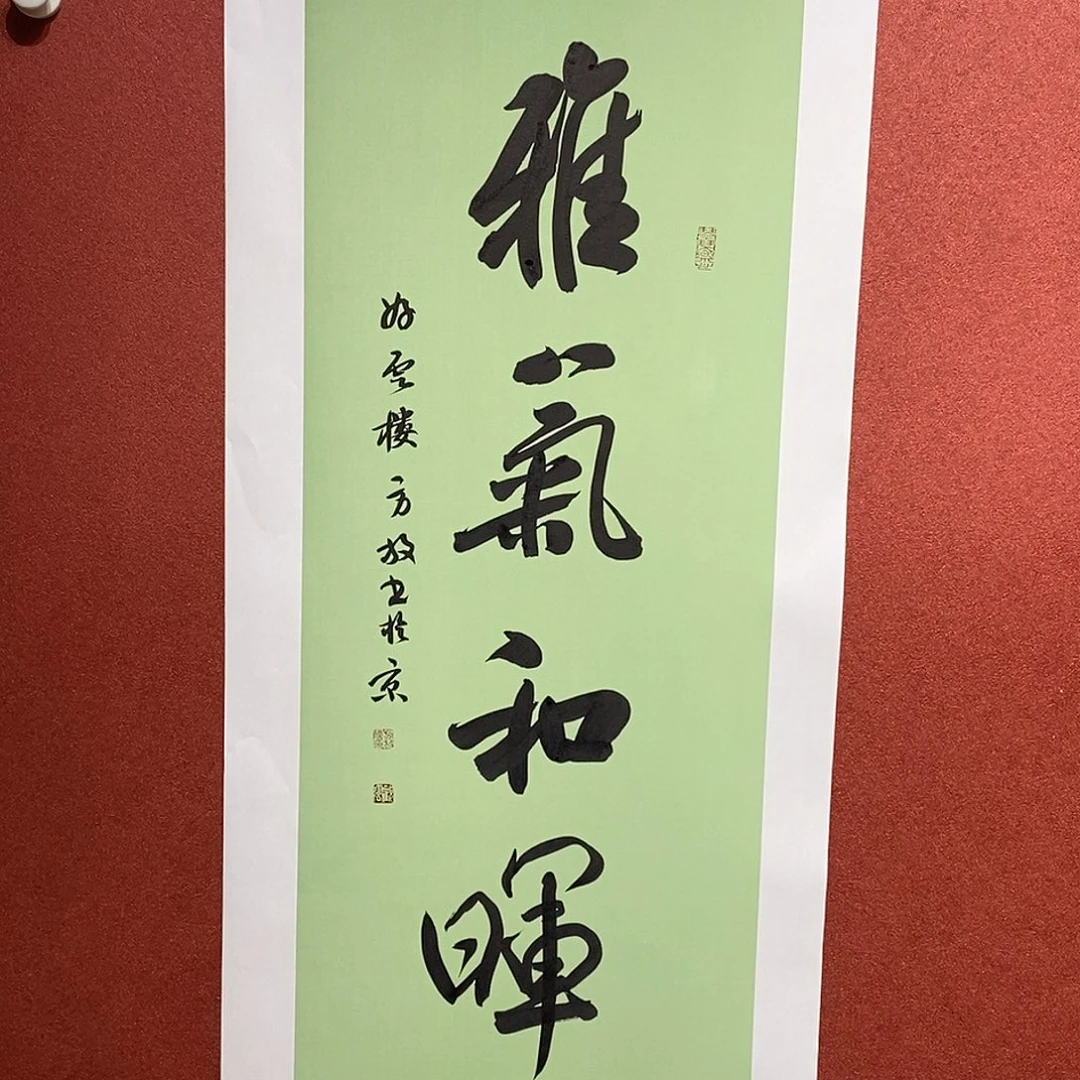 雅氣和暉
好雲樓方放书於京